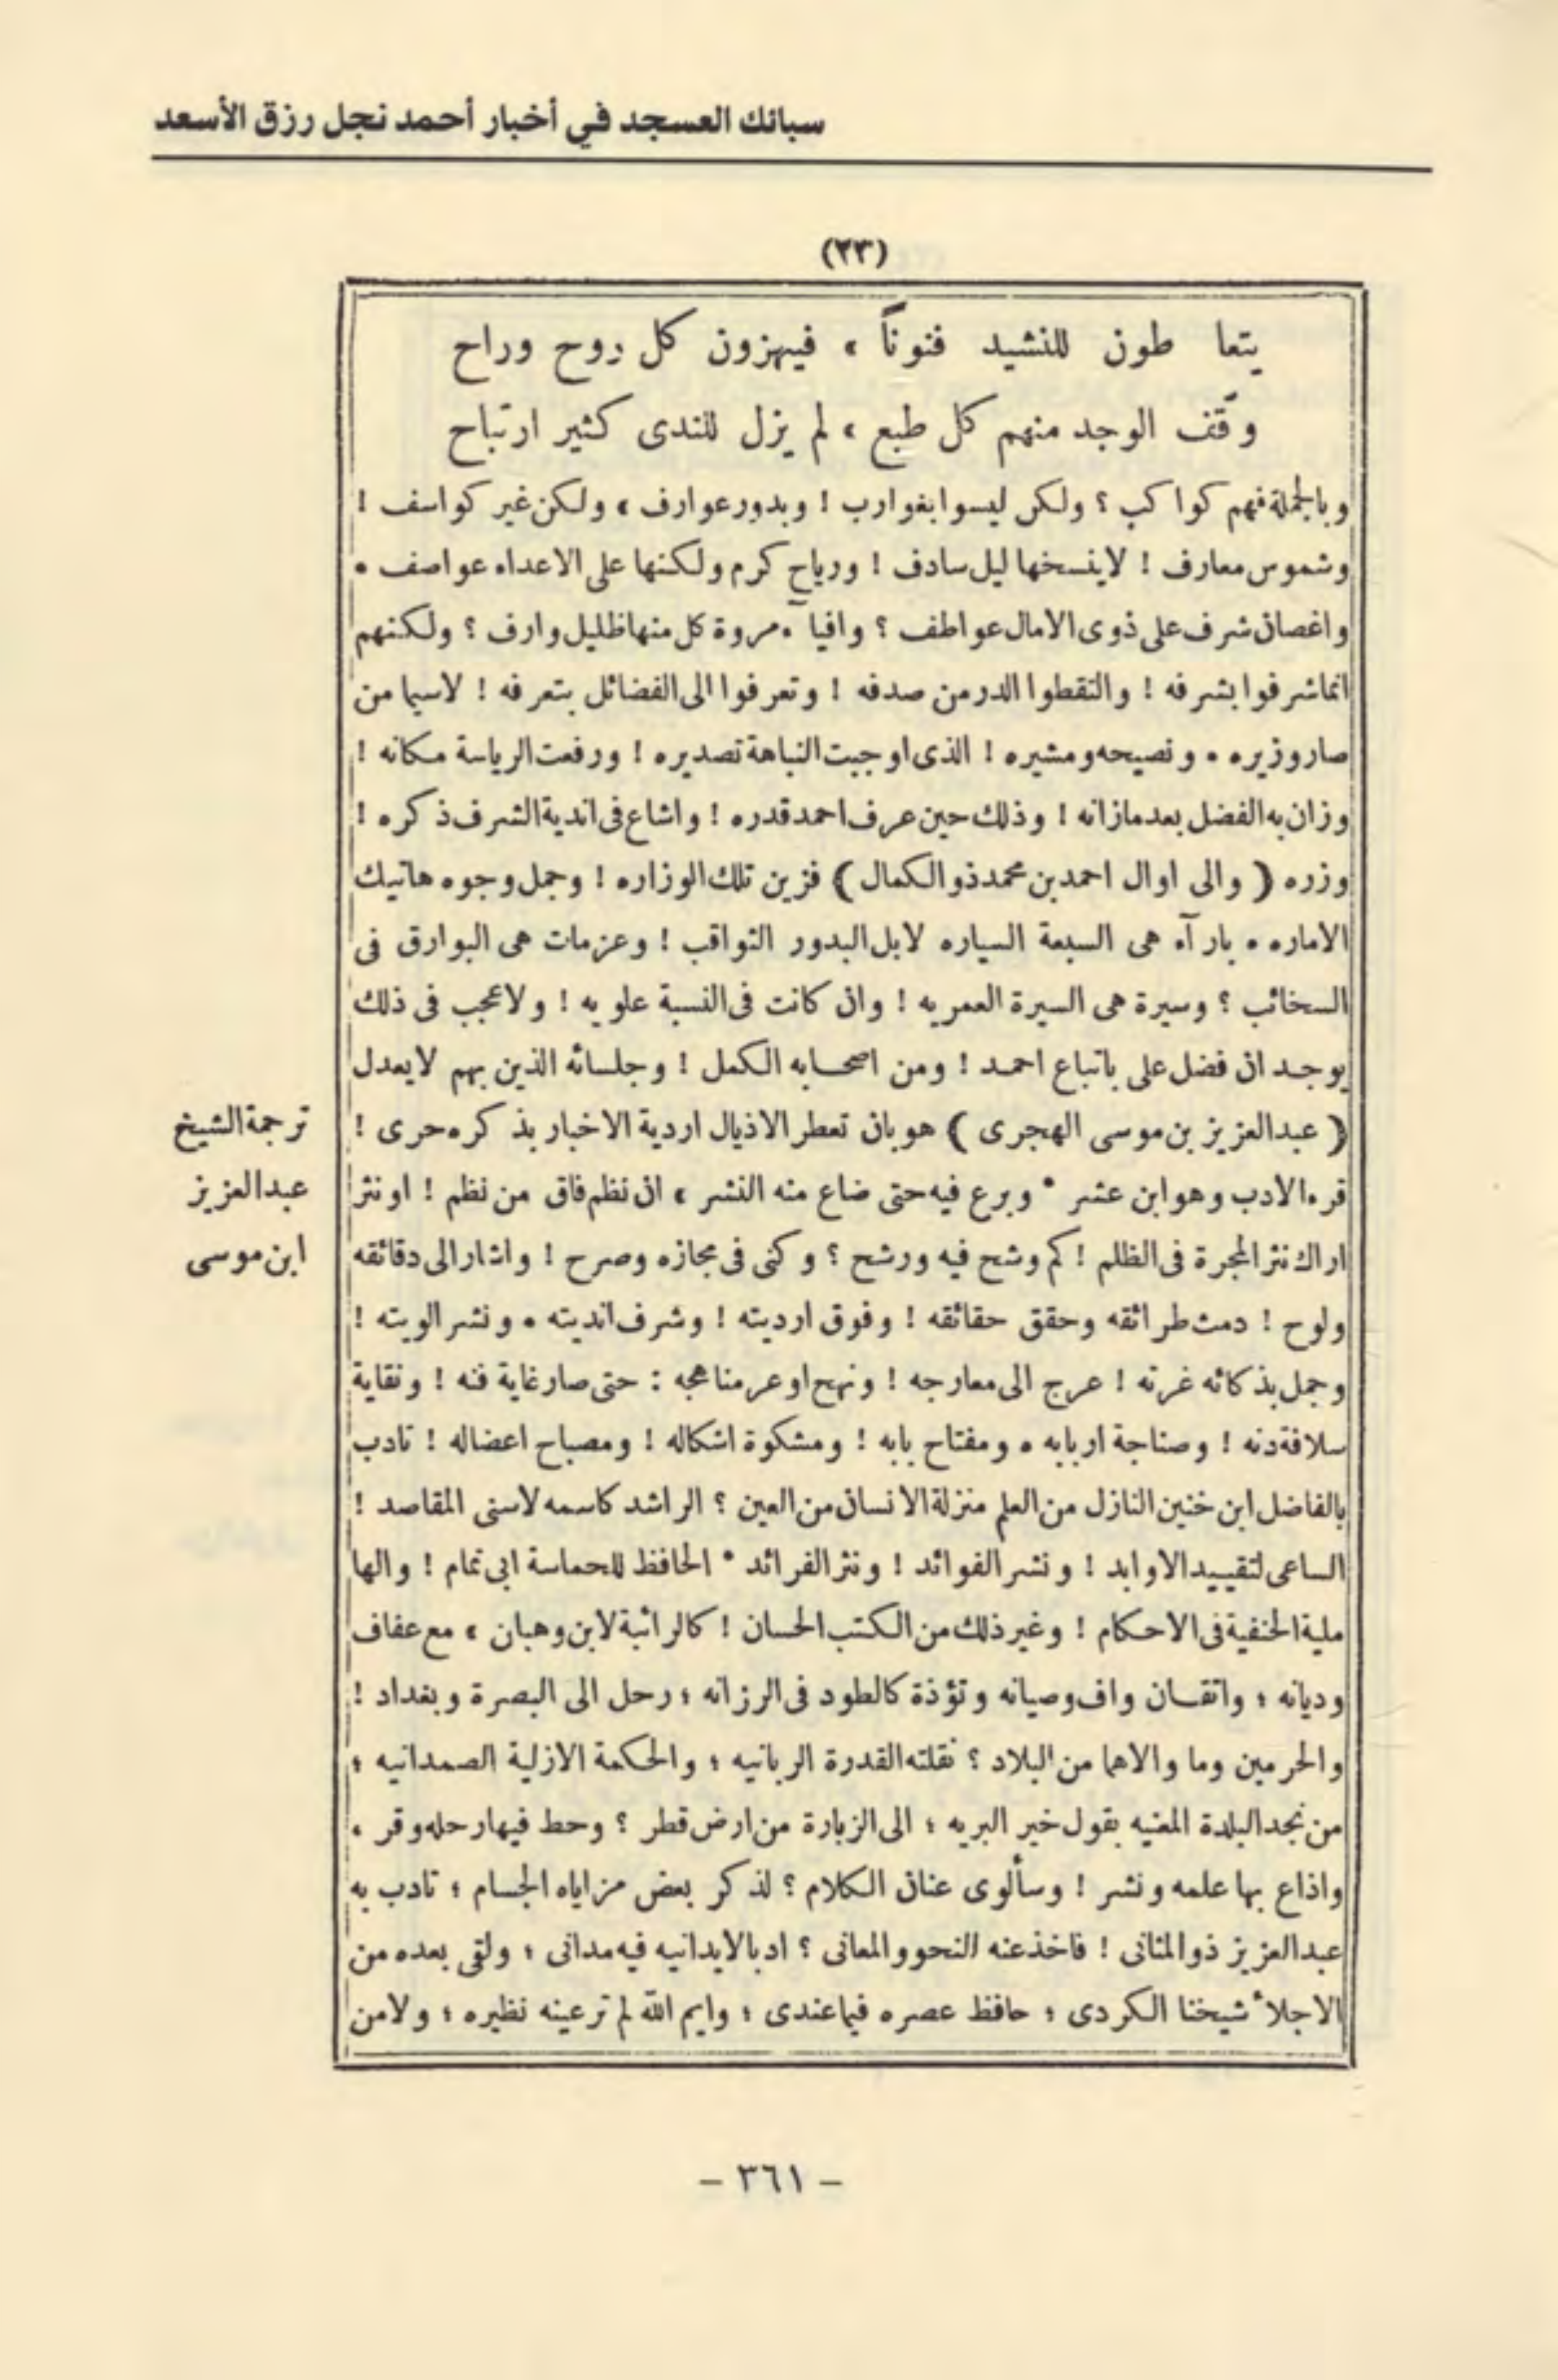 سبائك العسجد في أخبار أحمد نجل رزق الأسعد
(٢٣)
يتعا طون للنشيد فنوناً ، فيهزون كل روح وراح
وقف الوجد منهم كل طبع ، لم يزل للندى كثير ارتياح
وبالجملة فهم كواكب ؟ ولكن ليسوا بغوارب ! وبدور عوارف ، ولكن غير كواسف !
وشموس معارف ! لاينسخها ليل سادف ! ورياح كرم ولكنها على الاعداء عواصف •
واغصان شرف على ذوى الامال عواطف ؟ وافياآء مروة كل منها ظليل وارف ؟ ولكنهم
انما شرفوا بشرفه ! والتقطوا الدر من صدفه ! وتعرفوا الى الفضائل بتعرفه ! لاسيما من
صار وزيره • ونصيحه ومشيره ! الذى اوجبت النباهة تصديره ! ورفعت الرياسة مكانه !
وزان به الفضل بعد مازانه ! وذلك حين عرف احمد قدره ! واشاع فى اندية الشرف ذكره !
وزره ( والى اوال احمد بن محمد ذو الكمال ) فزين تلك الوزاره ! وجمل وجوه هاتيك
الاماره • بارآء هى السبعة السياره لابل البدور الثواقب ! وعزمات هى البوارق فى
السخائب ؟ وسيرة هى السيرة العمريه ! وان كانت فى النسبة علويه ! ولاعجب فى ذلك
يوجد ان فضل على باتباع احمد ! ومن اصحابه الكمل ! وجلسائه الذين بهم لايعدل
( عبدالعزيز بن موسى الهجرى ) هو بان تعطر الاذيال اردية الاخبار بذكره حرى !
ترجمة الشيخ
عبدالعزيز
ابن موسى
قرء الادب وهو ابن عشر • وبرع فيه حتى ضاع منه النشر ، ان نظم فاق من نظم ! اونثر
اراك نثر المجرة فى الظلم ! كم وشح فيه ورشح ؟ وكنى فى مجازه وصرح ! واشار الى دقائقه
ولوح ! دمث طرائقه وحقق حقائقه ! وفوق ارديته ! وشرف انديته • ونشر الويته !
وجمل بذكائه غرته ! عرج الى معارجه ! ونهج اوعر مناهجه : حتى صار غاية فنه ! ونقاية
سلافة دنه ! وصناجة اربابه • ومفتاح بابه ! ومشكوة اشكاله ! ومصباح اعضاله ! تادب
بالفاضل ابن خنين النازل من العلم منزلة الانسان من العين ؟ الراشد كاسمه لاسنى المقاصد !
الساعى لتقييد الاوابد ! ونشر الفوائد ! ونثر الفرائد • الحافظ للحماسة ابى تمام ! والها
ملية الحنفية فى الاحكام ! وغير ذلك من الكتب الحسان ! كالرائية لابن وهبان ، مع عفاف
وديانه ؛ واتقان واف وصيانه وتؤذة كالطود فى الرزانه ؛ رحل الى البصرة وبغداد !
والحرمين وما والاهما من البلاد ؟ نقلته القدرة الربانيه ؛ والحكمة الازلية الصمدانيه ؛
من نجد البلدة المعنيه بقول خير البريه ؛ الى الزبارة من ارض قطر ؟ وحط فيها رحله وقر ،
واذاع بها علمه ونشر ! وسألوى عنان الكلام ؟ لذكر بعض مزاياه الجسام ؛ تادب به
عبدالعزيز ذو المثانى ! فاخذ عنه النحو والمعانى ؟ ادبا لايدانيه فيه مدانى ؛ ولقى بعده من
الاجلاء شيخنا الكردى ؛ حافظ عصره فيما عندى ؛ وايم الله لم تر عينه نظيره ؛ ولا من
– ٣٦١ –